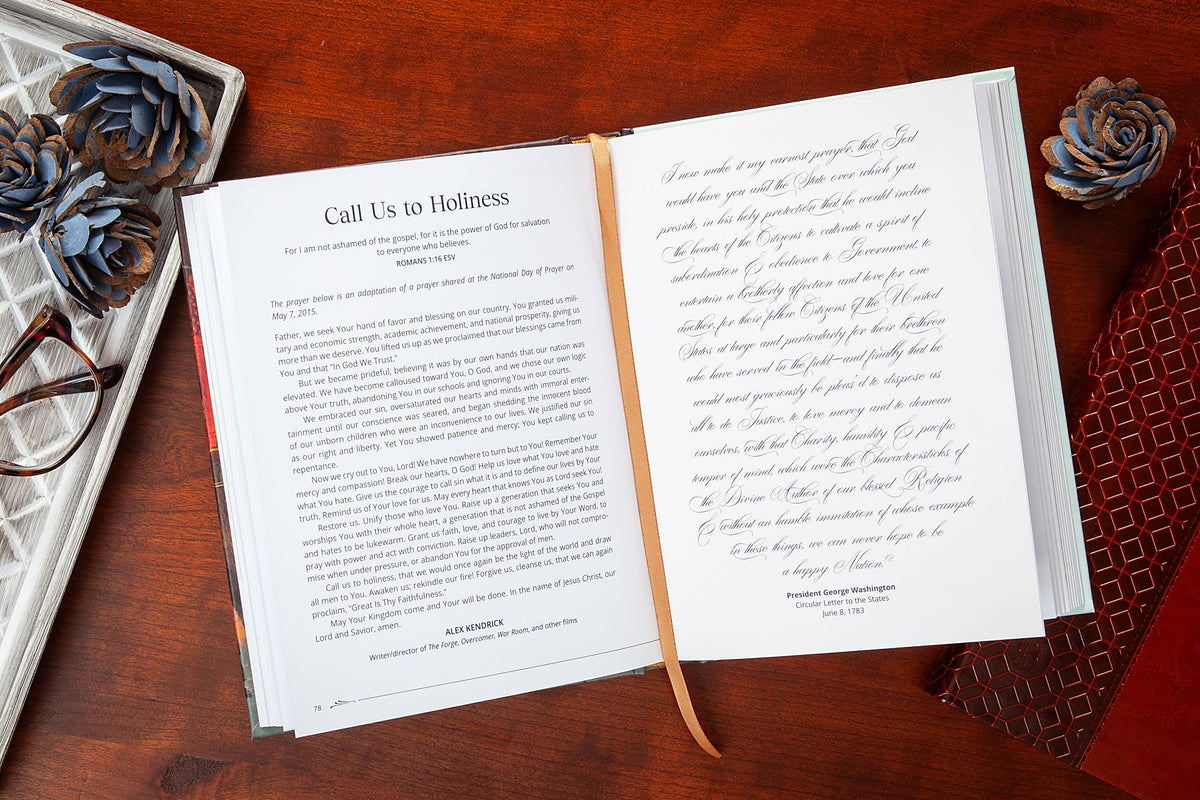 Call Us to Holiness
For I am not ashamed of the gospel, for it is the power of God for salvation
to everyone who believes.
ROMANS 1:16 ESV
The prayer below is an adaptation of a prayer shared at the National Day of Prayer on
May 7, 2015.
Father, we seek Your hand of favor and blessing on our country. You granted us mili-
tary and economic strength, academic achievement, and national prosperity, giving us
more than we deserve. You lifted us up as we proclaimed that our blessings came from
You and that “In God We Trust.”
But we became prideful, believing it was by our own hands that our nation was
elevated. We have become calloused toward You, O God, and we chose our own logic
above Your truth, abandoning You in our schools and ignoring You in our courts.
We embraced our sin, oversaturated our hearts and minds with immoral enter-
tainment until our conscience was seared, and began shedding the innocent blood
of our unborn children who were an inconvenience to our lives. We justified our sin
as our right and liberty. Yet You showed patience and mercy; You kept calling us to
repentance.
Now we cry out to You, Lord! We have nowhere to turn but to You! Remember Your
mercy and compassion! Break our hearts, O God! Help us love what You love and hate
what You hate. Give us the courage to call sin what it is and to define our lives by Your
truth. Remind us of Your love for us. May every heart that knows You as Lord seek You!
Restore us. Unify those who love You. Raise up a generation that seeks You and
worships You with their whole heart, a generation that is not ashamed of the Gospel
and hates to be lukewarm. Grant us faith, love, and courage to live by Your Word, to
pray with power and act with conviction. Raise up leaders, Lord, who will not compro-
mise when under pressure, or abandon You for the approval of men.
Call us to holiness, that we would once again be the light of the world and draw
all men to You. Awaken us; rekindle our fire! Forgive us, cleanse us, that we can again
proclaim, “Great Is Thy Faithfulness.”
May Your Kingdom come and Your will be done. In the name of Jesus Christ, our
Lord and Savior, amen.
ALEX KENDRICK
Writer/director of The Forge, Overcomer, War Room, and other films
78
I now make it my earnest prayer that God
would have you and the State over which you
preside, in his holy protection that he would incline
the hearts of the Citizens to cultivate a spirit of
subordination & obedience to Government, to
entertain a brotherly affection and love for one
another, for their fellow Citizens of the United
States at large and particularly for their brethren
who have served in the field—and finally that he
would most graciously be pleas'd to dispose us
all to do Justice, to love mercy and to demean
ourselves, with that Charity, humility & pacific
temper of mind, which were the Characteristicks of
the Divine Author of our blessed Religion
& without an humble immitation of whose example
in these things, we can never hope to be
a happy Nation.
President George Washington
Circular Letter to the States
June 8, 1783